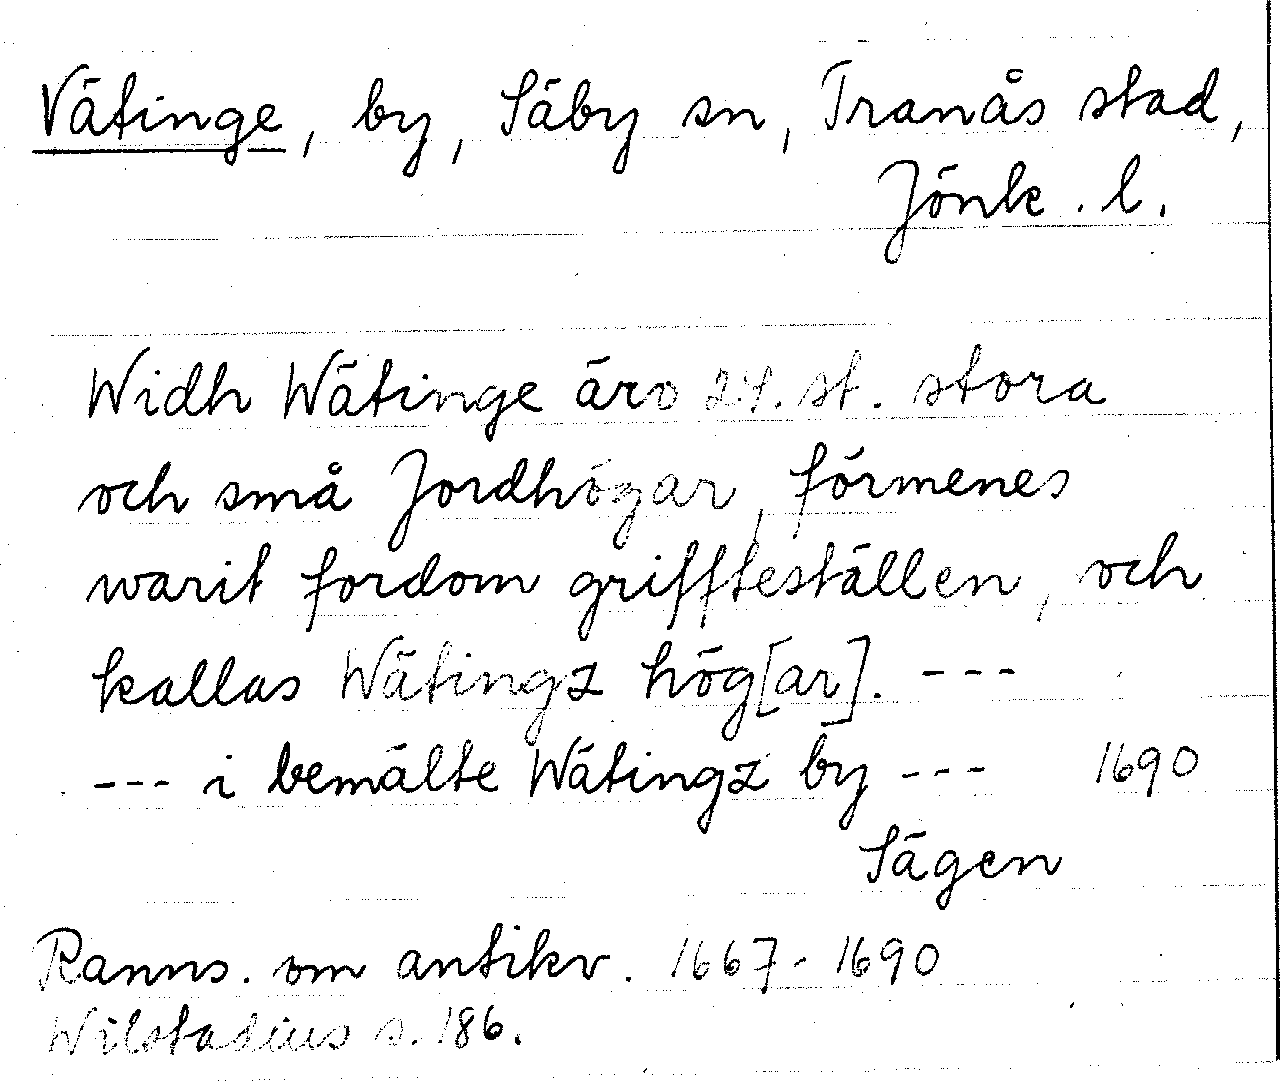 Vätinge, by, Säby sn, Tranås stad,
Jönk. l.
Widh Wätinge äro 24. st. stora
och små Jordhögar, förmenes
warit fordom griffteställen, och
kallas Wätingz hög[ar]. ---
--- i bemälte Wätingz by --- 1690
Sägen
Ranns. om antikv. 1667-1690
Wilstadius s. 186.